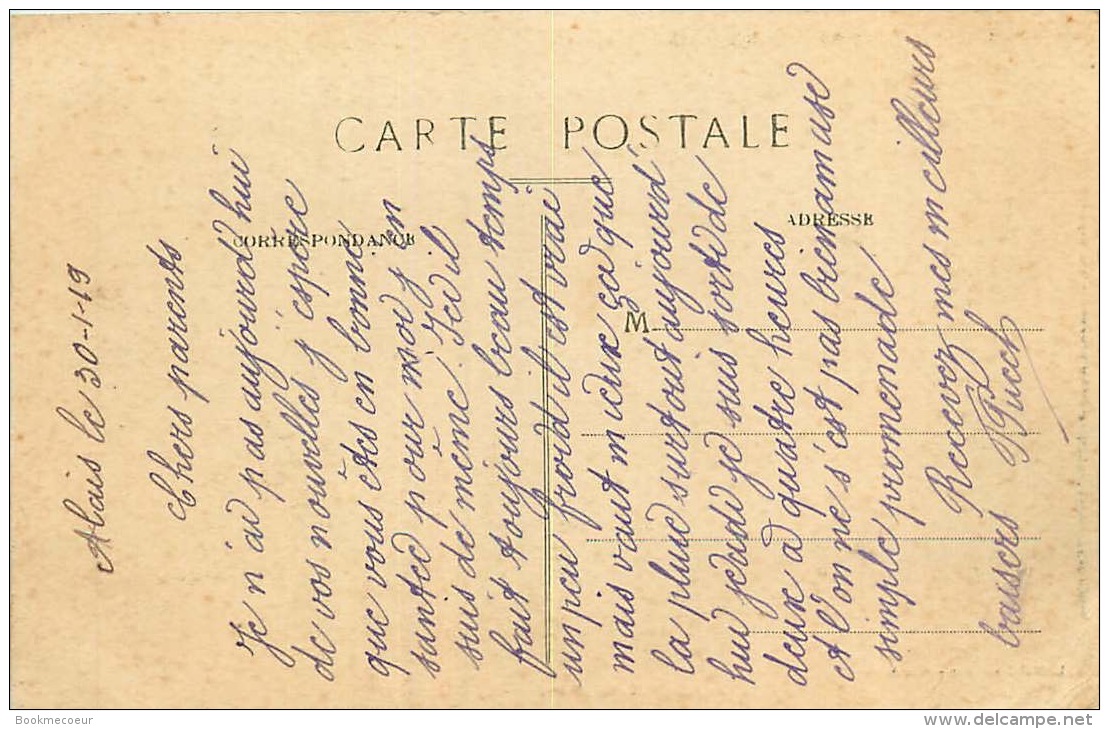 CARTE POSTALE
CORRESPONDANCE
ADRESSE
M
Alais le 30-1-19
Chers parents
Je n'ai pas aujourd'hui
de vos nouvelles j'espère
que vous êtes en bonne
santée pour moi j'en
suis de même. Ici il
fait toujours beau temps
un peu froid il est vrai
mais vaut mieux ça que
la pluie surtout aujourd'
hui jeudi je suis sorti de
deux à quatre heures
et l'on ne s'est pas bien amusé
simple promenade
Recevez mes meilleurs
baisers Puech
Bookmecoeur
delcampe.net